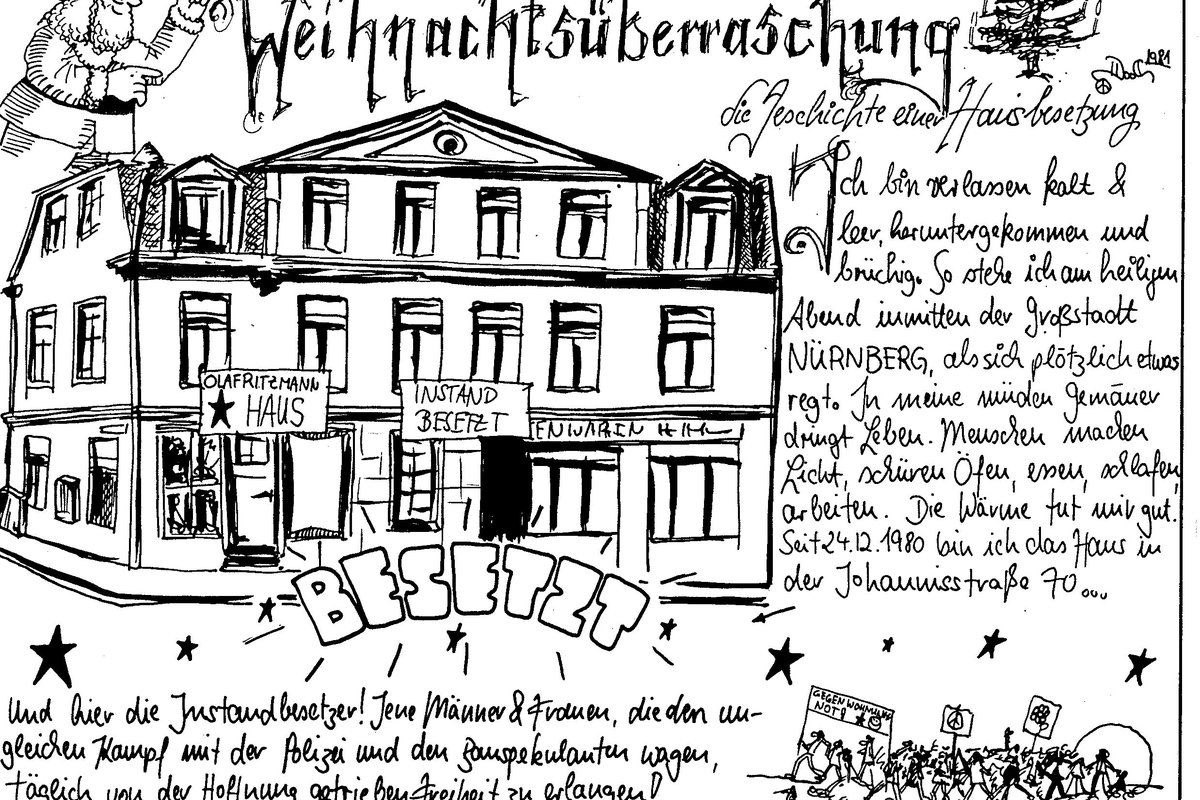 Weihnachtsüberraschung
1981
die Geschichte einer Hausbesetzung
Ich bin verlassen kalt &
leer, heruntergekommen und
brüchig. So stehe ich am heiligen
Abend inmitten der Großstadt
NÜRNBERG, als sich plötzlich etwas
regt. In meine müden Gemäuer
dringt Leben. Menschen machen
Licht, schüren Öfen, essen, schlafen,
arbeiten. Die Wärme tut mir gut.
Seit 24.12.1980 bin ich das Haus in
der Johannisstraße 70...
OLAFRITZMANN
HAUS
INSTAND
BESETZT
BESETZT
Und hier die Instandbesetzer! Jene Männer & Frauen, die den un-
gleichen Kampf mit der Polizei und den Bauspekulanten wagen,
täglich von der Hoffnung getrieben Freiheit zu erlangen!
GEGEN WOHNUNGS
NOT!